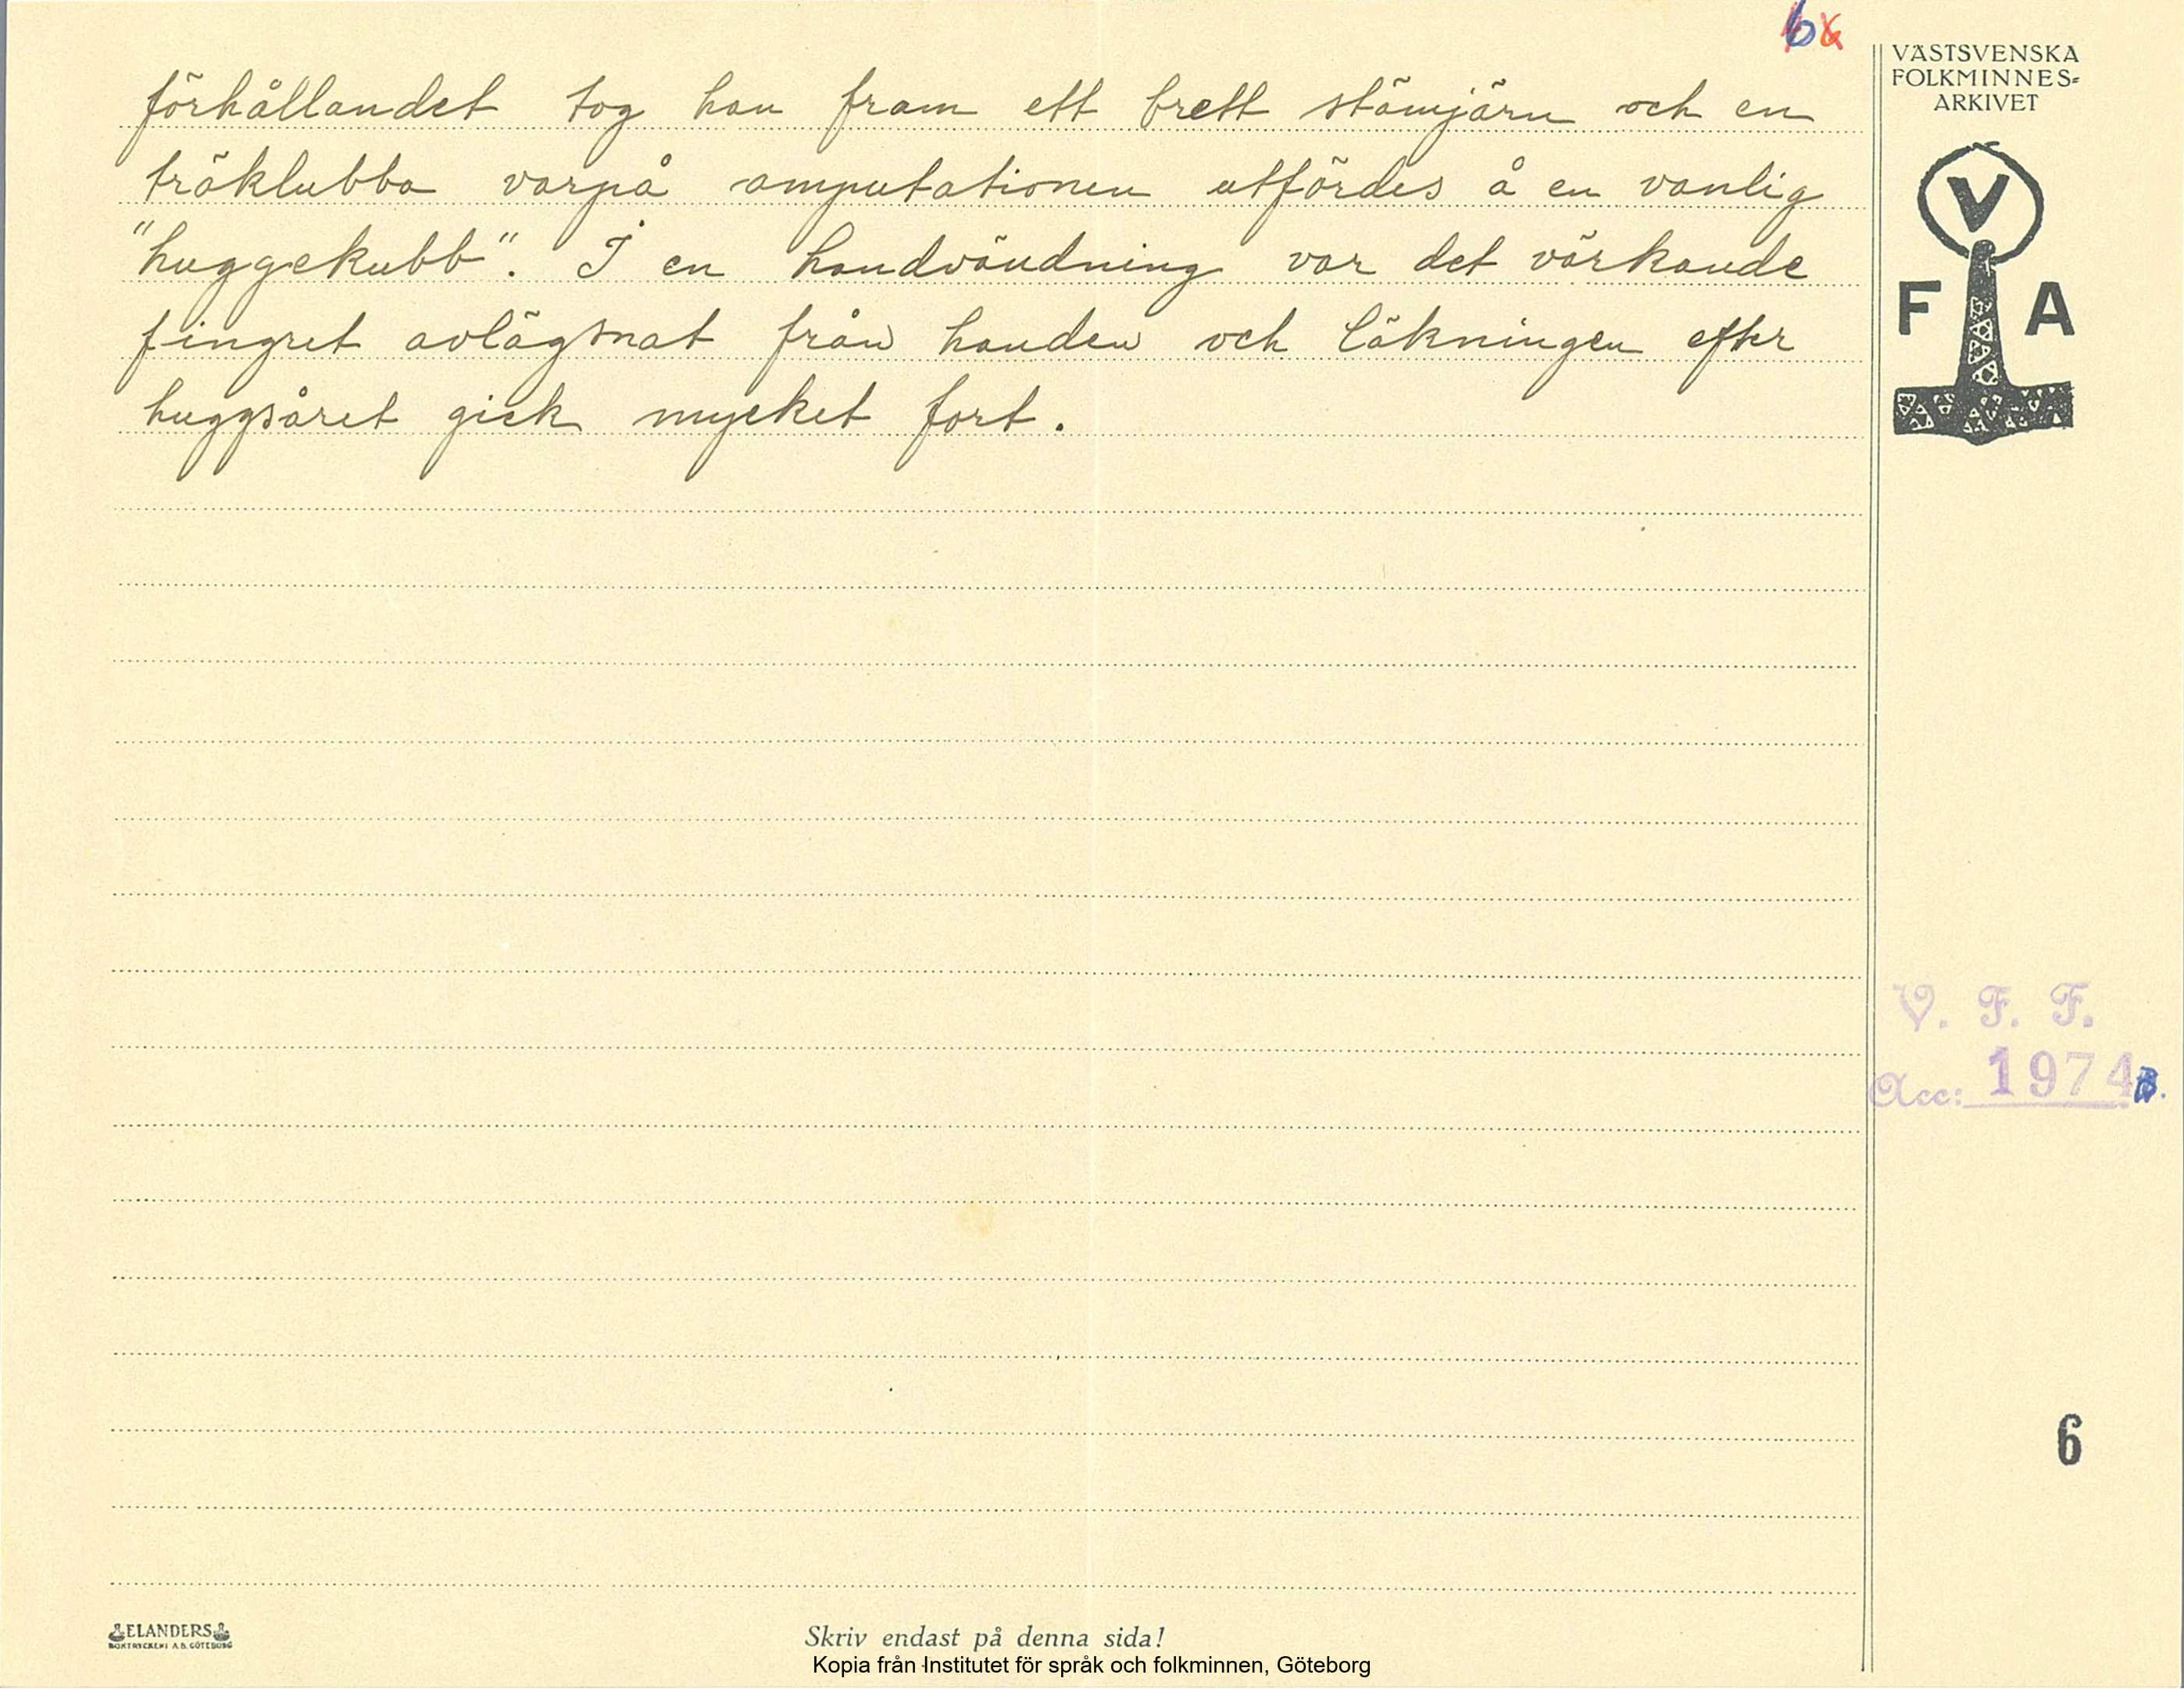 6
förhållandet tog han fram ett brett stämjärn och en
träklubba varpå amputationen utfördes å en vanlig
"huggekubb". I en handvändning var det värkande
fingret avlägsnat från handen och läkningen efter
huggsåret gick mycket fort.
VÄSTSVENSKA
FOLKMINNES=
ARKIVET
V
F A
V. F. F.
Acc: 1974
6
ELANDERS
BOKTRYCKERI A.B. GÖTEBORG
Skriv endast på denna sida!
Kopia från Institutet för språk och folkminnen, Göteborg